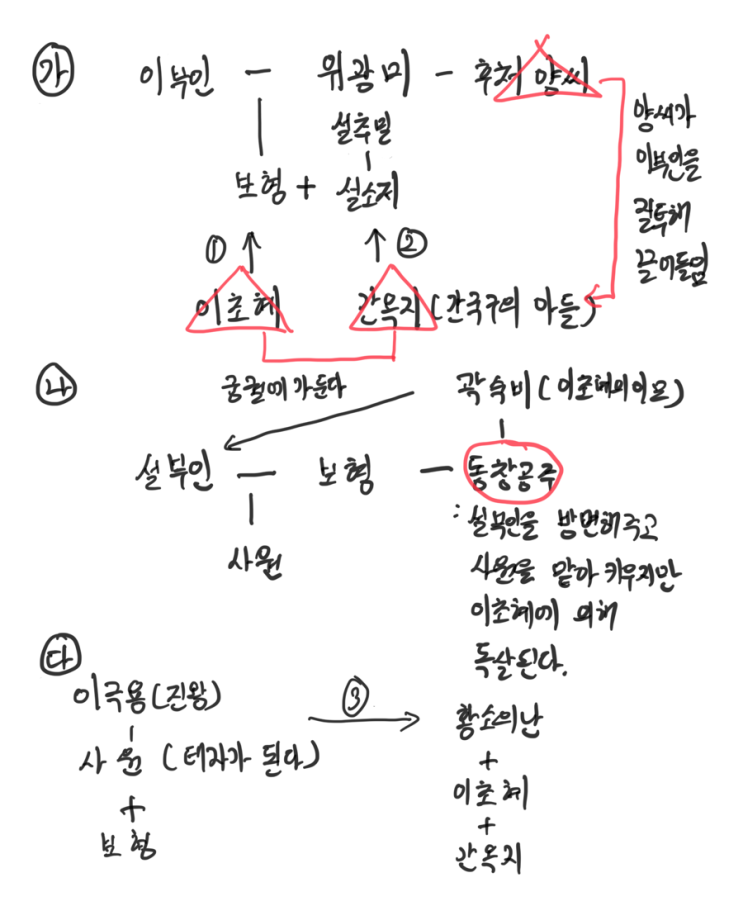 가 이부인 - 위광미 - 후처 양씨
설추밀
보형 + 설소저
양씨가
이부인을
질투해
끌어들임
① ②
이초혜 간옥지 (간국구의 아들)
궁궐에 가둔다
나 곽숙비 (이초혜의 이모)
설부인 - 보형 - 동창공주
사원
: 설부인을 방면해주고
사원을 맡아 키우지만
이초혜에 의해
독살된다.
다
이극용 (진왕)
사원 (태자가 된다)
+
보형
③
황소의난
+
이초혜
+
간옥지